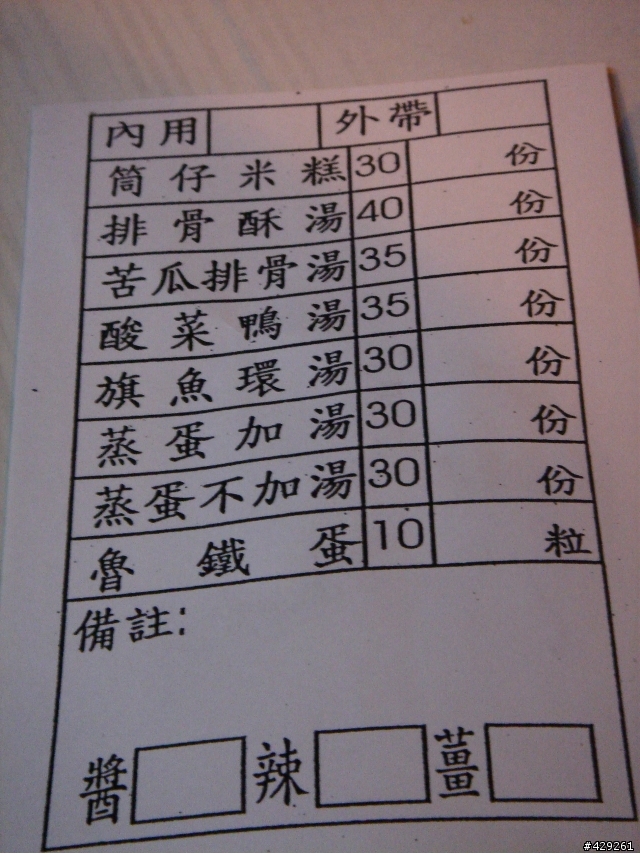 內用 外帶
筒仔米糕 30 份
排骨酥湯 40 份
苦瓜排骨湯 35 份
酸菜鴨湯 35 份
旗魚環湯 30 份
蒸蛋加湯 30 份
蒸蛋不加湯 30 份
魯鐵蛋 10 粒
備註:
醬 辣 薑
#429261